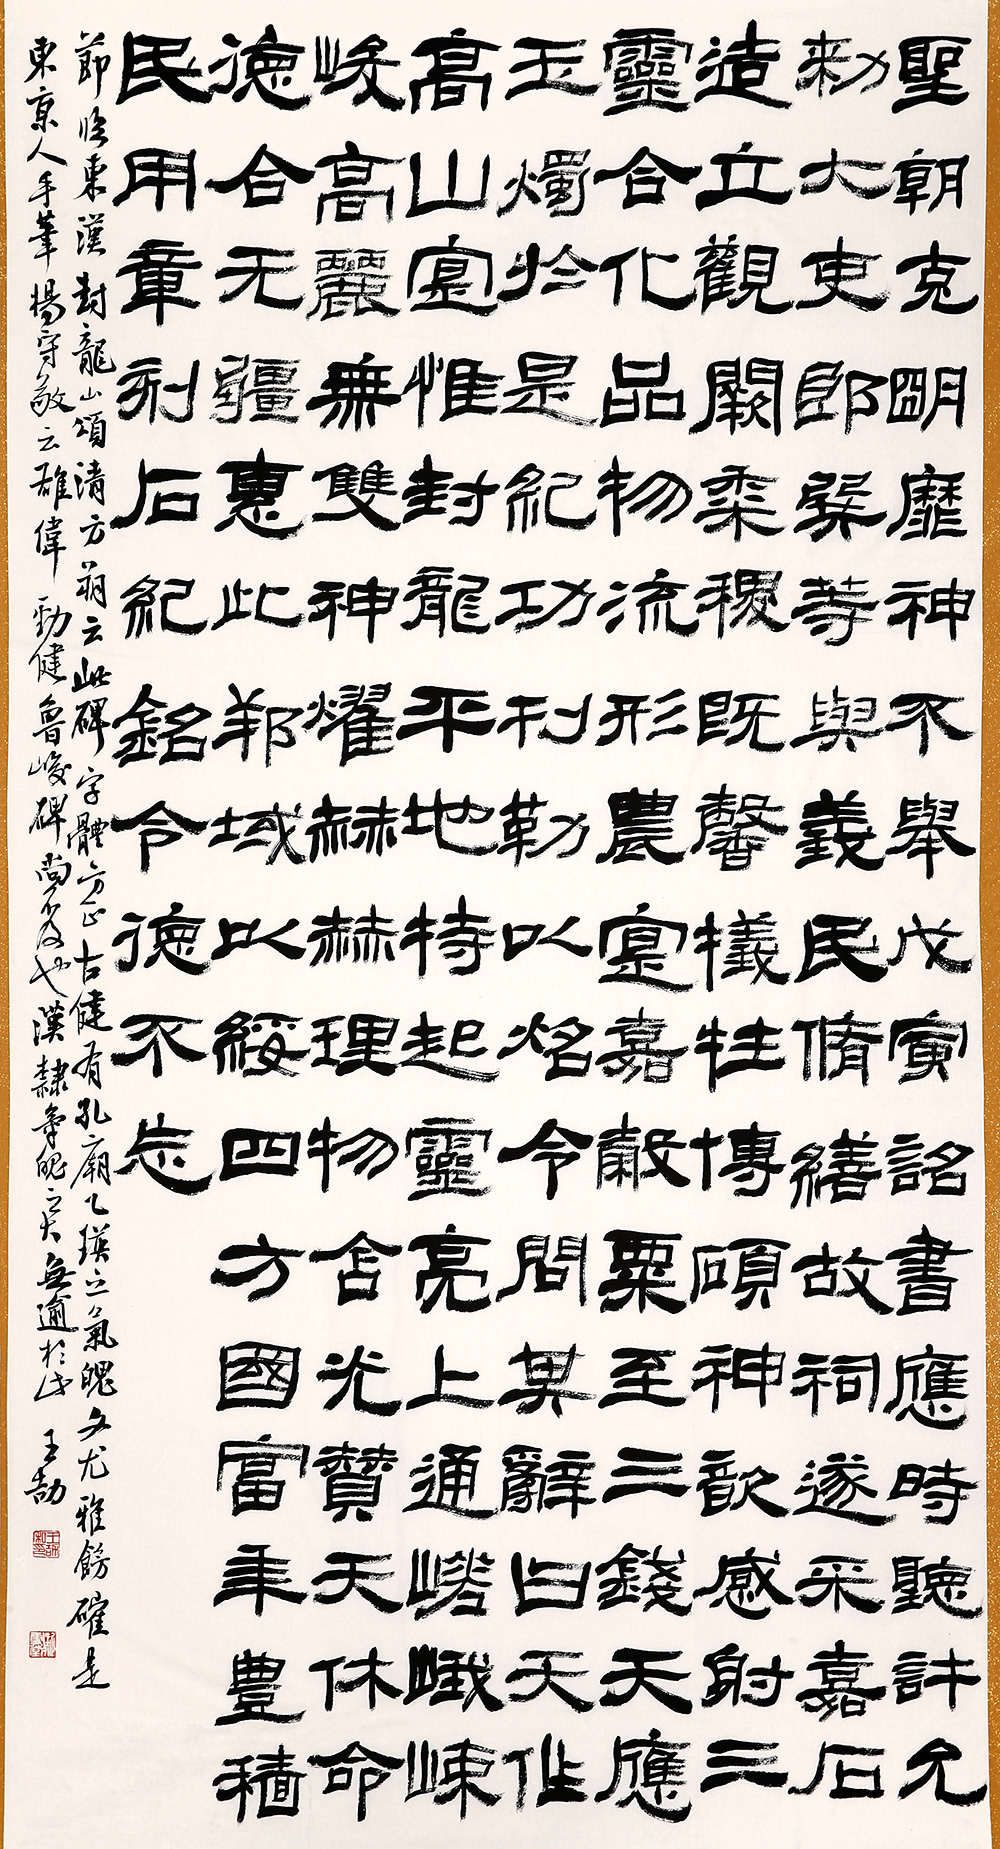 聖朝克明靡神不舉戊寅詔書應時聽許允
勑大吏郎巽等與義民脩繕故祠遂采嘉石
造立觀闕黍稷既馨犧牲博碩神歆感射三
靈合化品物流形農寔嘉穀粟至三錢天應
玉燭於是紀功刊勒以炤令問其辭曰天作
高山寔惟封龍平地特起靈亮上通嵯峨崠
峻高麗無雙神耀赫赫理物含光贊天休命
德合无疆惠此邦域以綏四方國富年豊穡
民用章刻石紀銘令德不忘
節臨東漢封龍山頌清方朔云此碑字體方正古健有孔廟乙瑛之氣魄文尤雅飭確是
東京人手筆楊守敬云雄偉勁健魯峻碑尚不及也漢隸氣魄之大無逾於此 王劼